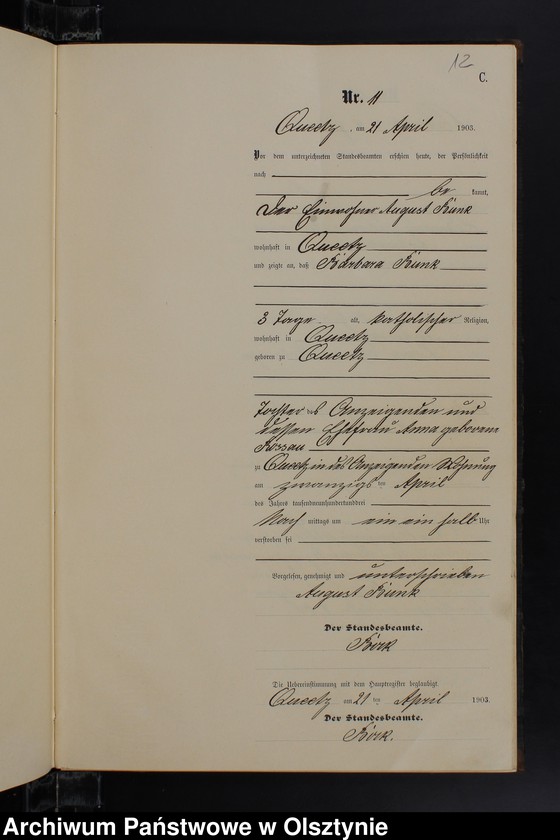 12
C.
Nr. 11
Queetz, am 21 April 1903.
Vor dem unterzeichneten Standesbeamten erschien heute, der Persönlichkeit
nach
be kannt,
der Einwohner August
wohnhaft in Queetz
und zeigte an, daß Barbara
3 Tage alt, katholischer Religion,
wohnhaft in Queetz
geboren zu Queetz
Tochter des Anzeigenden und
dessen Ehefrau Anna geborene
zu Queetz in des Anzeigenden Wohnung
am zwanzigs ten April
des Jahres tausendneunhundertunddrei
Nach mittags um ein ein halb Uhr
verstorben sei
Vorgelesen, genehmigt und unterschrieben
August
Der Standesbeamte.
Die Uebereinstimmung mit dem Hauptregister beglaubigt.
Queetz am 21 ten April 1903.
Der Standesbeamte.
Archiwum Państwowe w Olsztynie